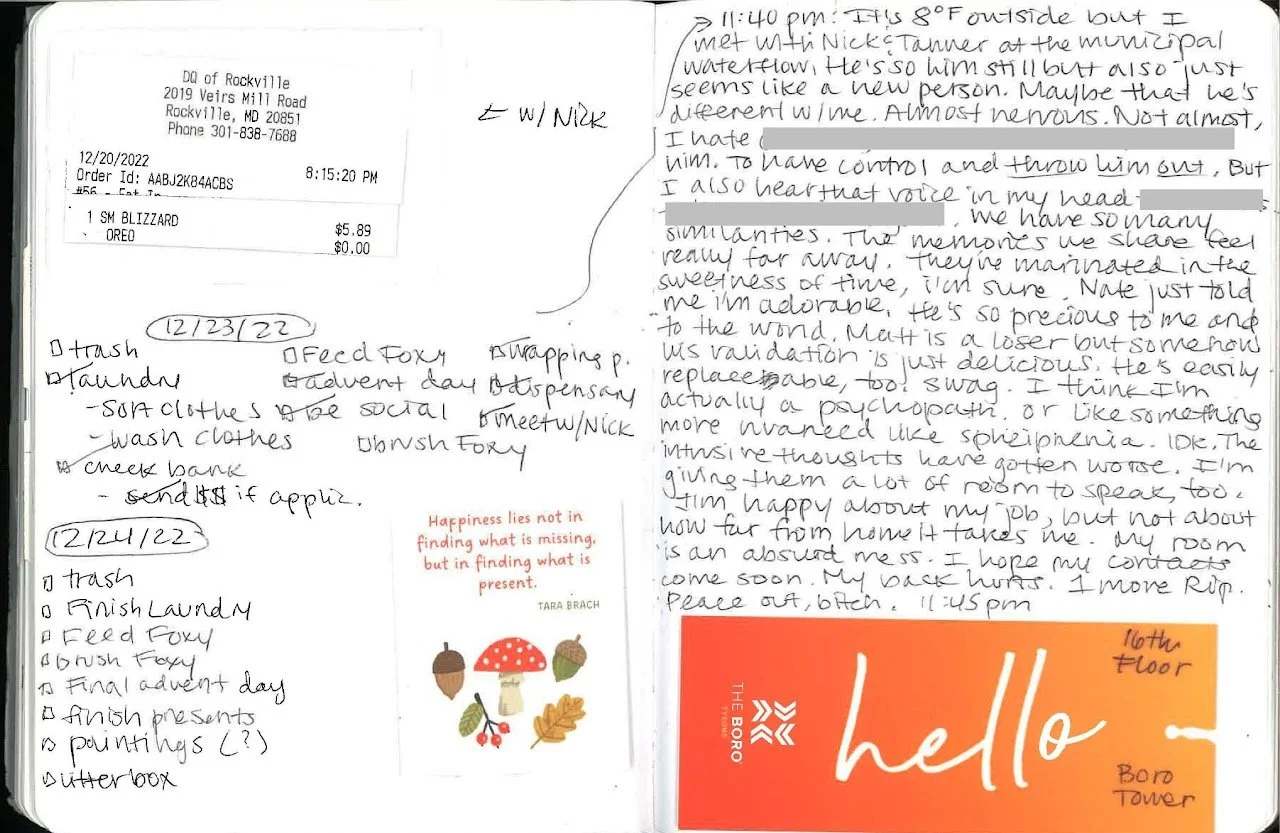 DQ of Rockville
2019 Veirs Mill Road
Rockville, MD 20851
Phone 301-838-7688
12/20/2022 8:15:20 PM
Order Id: AABJ2K84ACBS
1 SM BLIZZARD $5.89
OREO $0.00
← W/ NICK
12/23/22
trash
laundry
- Sort clothes
- wash clothes
check bank
- send $$ if applic.
Feed Foxy
advent day
be social
brush Foxy
wrapping p.
dispensary
meet w/Nick
12/24/22
trash
Finish Laundry
Feed Foxy
brush Foxy
Final advent day
finish presents
paintings (?)
litter box
Happiness lies not in
finding what is missing,
but in finding what is
present.
TARA BRACH
11:40 pm: It's 8°F outside but I
met with Nick & Tanner at the municipal
waterflow. He's so him still but also just
seems like a new person. Maybe that he's
different w/me. Almost nervous. Not almost,
I hate
him. To have control and throw him out. But
I also hear that voice in my head
. We have so many
similarities. The memories we share feel
really far away. They've marinated in the
sweetness of time, i'm sure. Nate just told
me i'm adorable. He's so precious to me and
to the world. Matt is a loser but somehow
his validation is just delicious. He's easily
replaceable, too. Swag. I think I'm
actually a psychopath. or like something
more like IDK. The
intrusive thoughts have gotten worse. I'm
giving them a lot of room to speak, too.
I'm happy about my job, but not about
how far from home it takes me. My room
is an absurd mess. I hope my contacts
come soon. My back hurts. 1 more Rip.
Peace out, bitch. 11:45pm
THE BORO
TYSONS
hello
16th
Floor
Boro
Tower